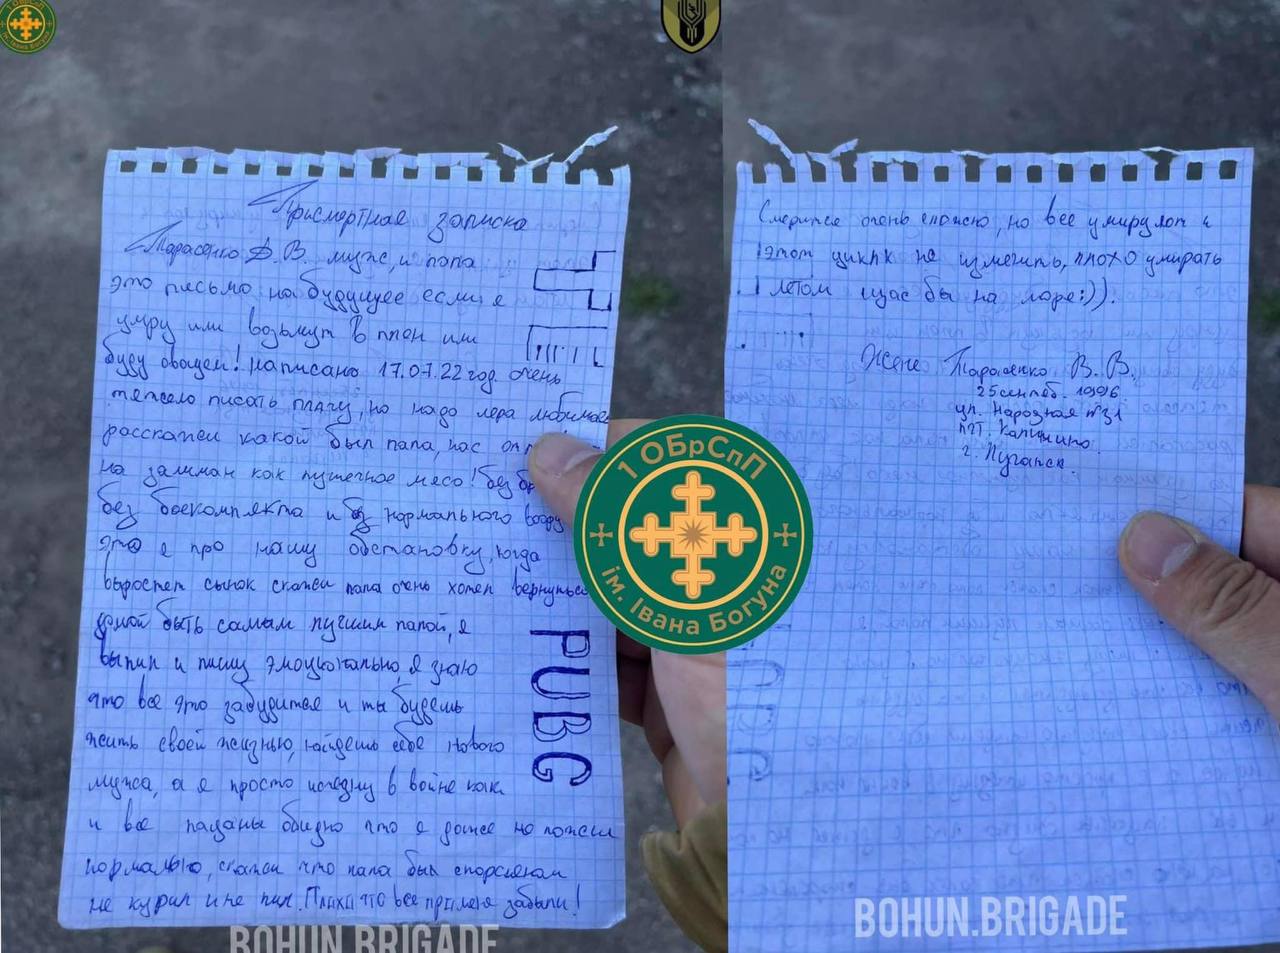 Присмертная записка
Тарасенко Д. В. муж, и папа
это письмо на будущее если я
умру или возьмут в плен или
буду овощем! написано 17.07.22 год. очень
тяжело писать плачу, но надо лера любимая
расскажи какой был папа, нас
на заклан как пушечное мясо! без
без боекомплекта и без нормального
это я про нашу обстановку, когда
выростет сынок скажи папа очень хотел вернуться
домой быть самым лучшим папой, я
выпил и пишу эмоционально, я знаю
что все это забудится и ты будешь
жить своей жизнью, найдешь себе нового
мужа, а я просто исчезну в войне как
и все пацаны обидно что я даже не пожил
нормально, скажи что папа был спорсменом
не курил и не пил. Плаха что все про меня забыли!
PUBG
Смерится очень сложно, но все умирулот и
этот цикл не изменить, плохо умирать
летом щас бы на море:)).
Жене Тарасенко В. В.
25 сентяб. 1996
ул. Народная
пгт. Калинино
г. Луганск.
1 ОБрСпП
ім. Івана Богуна
BOHUN.BRIGADE
BOHUN.BRIGADE